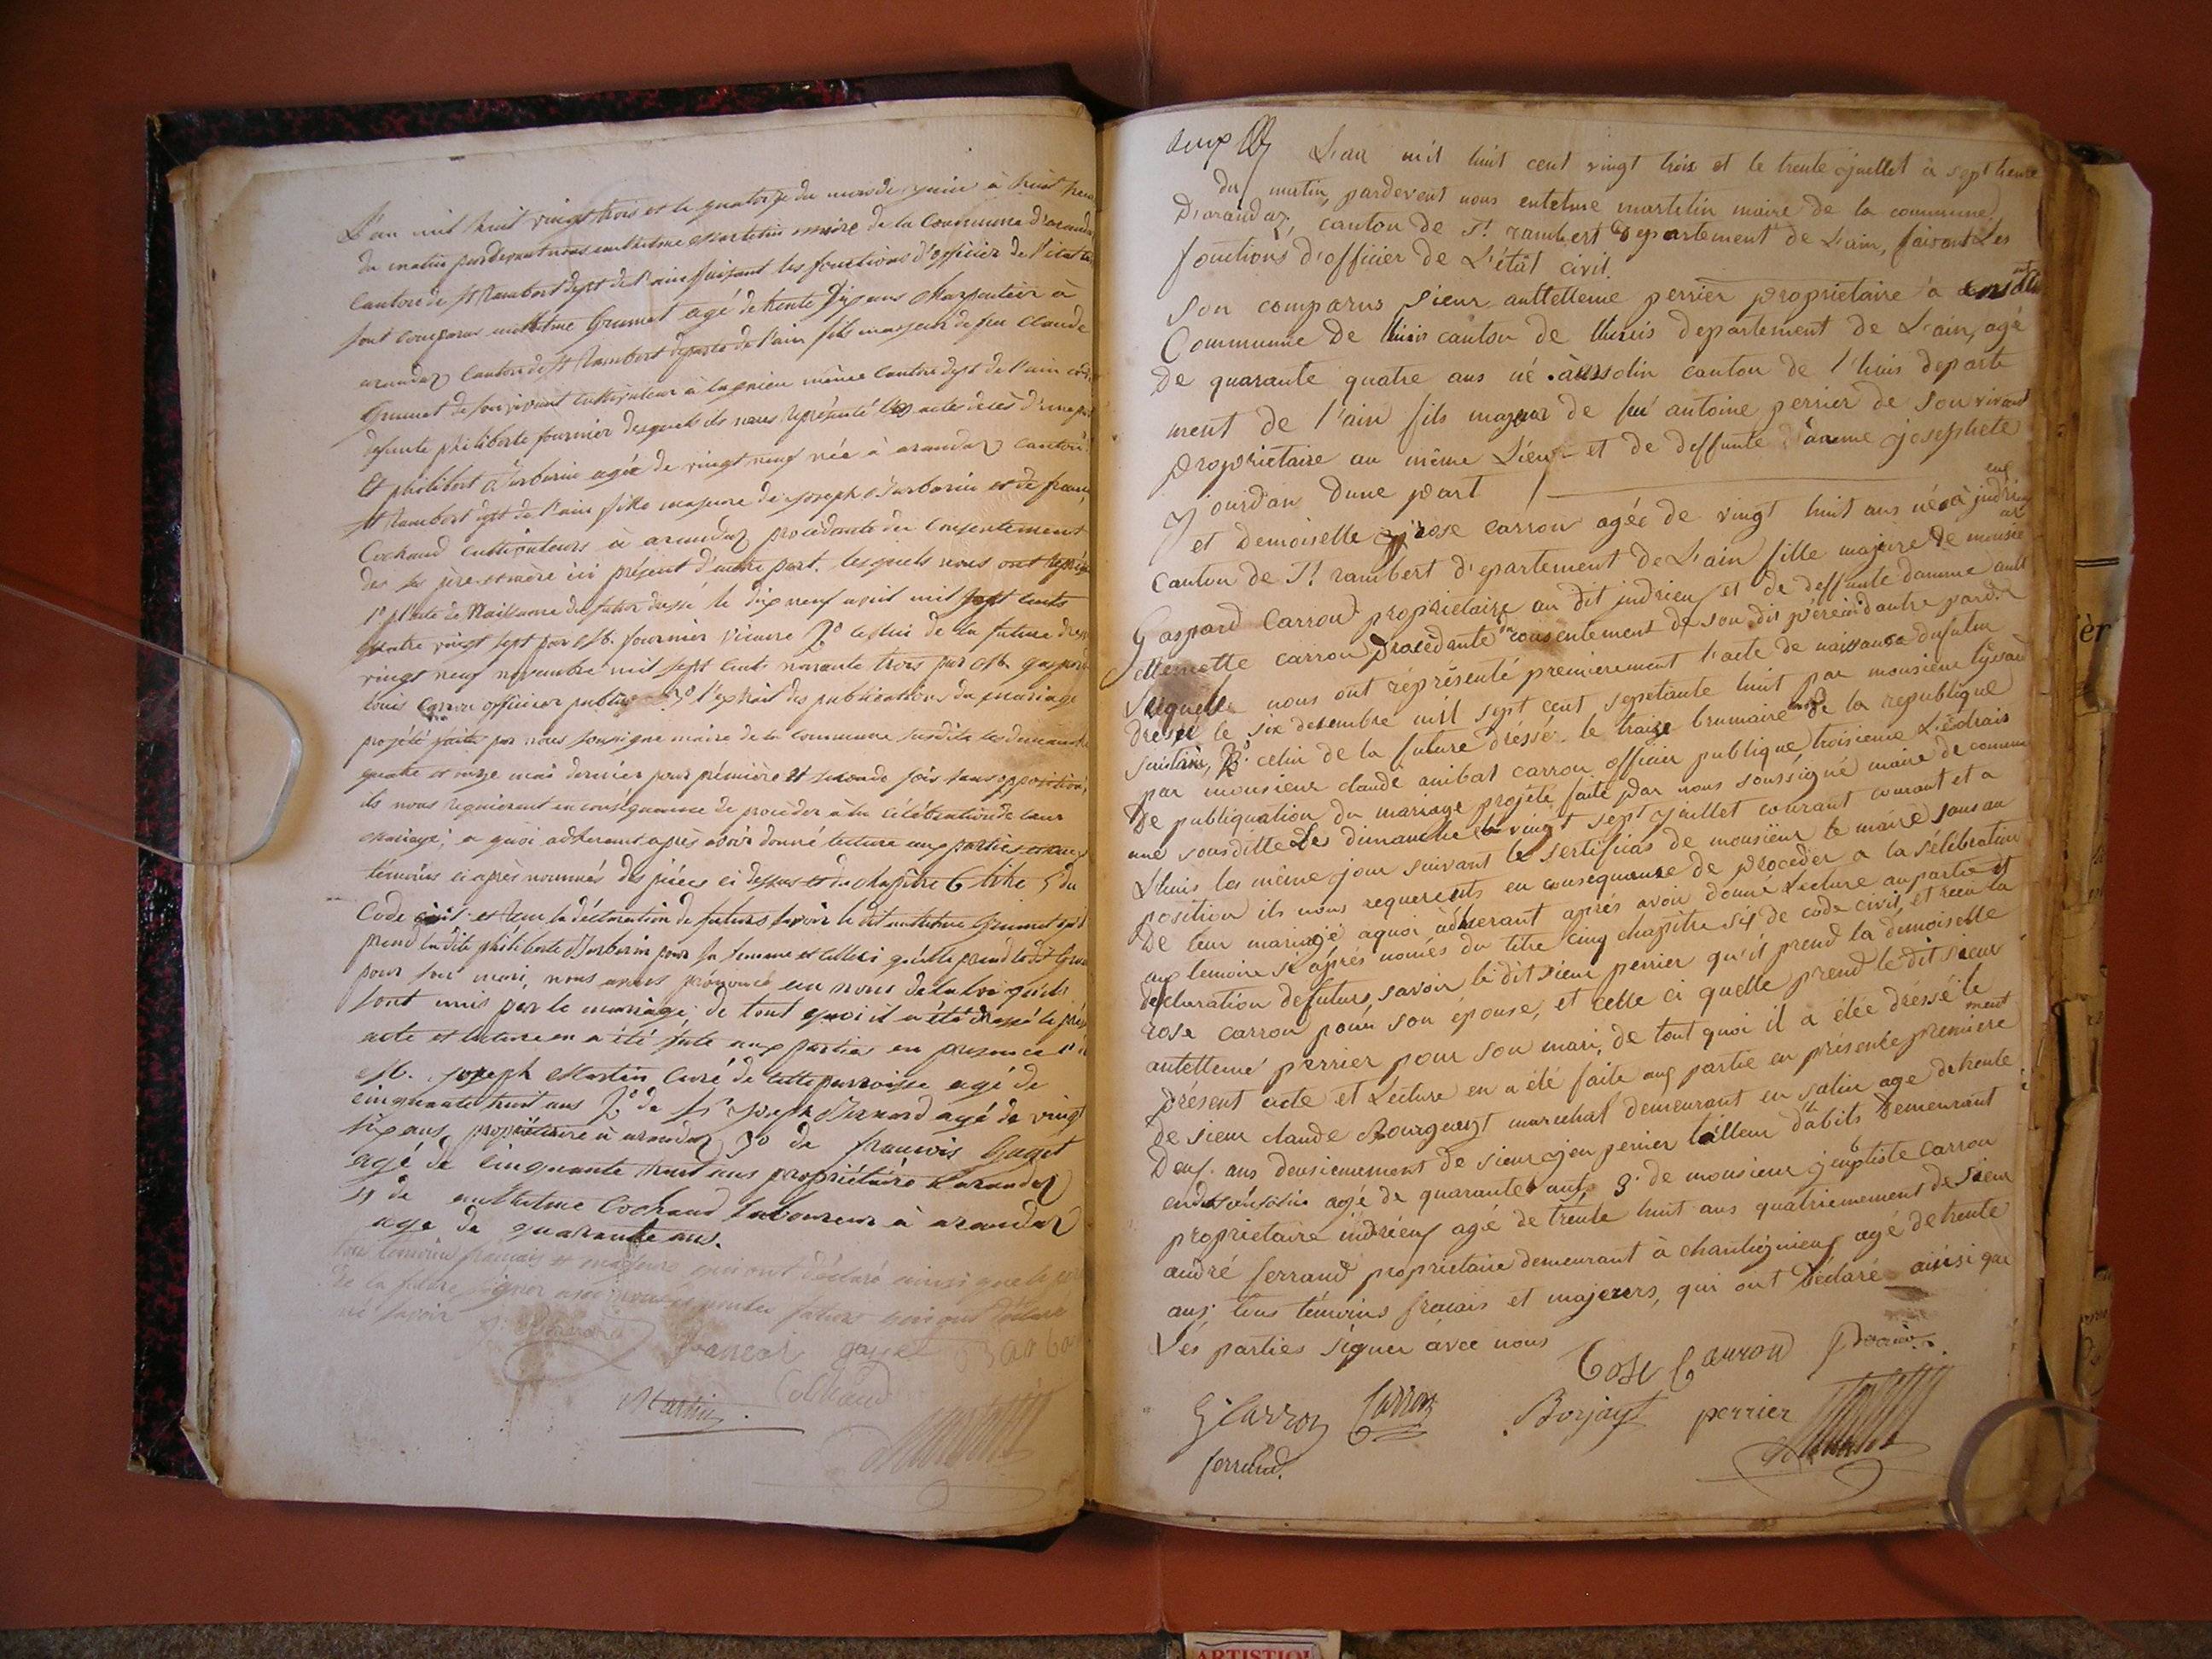 L'an mil huit vingt trois et le quatorze du mois de juin à huit heu
du matin pardevant nous anthelme Martelin maire de la Commune d'arandas
Canton de St Rambert dept de l'ain faisant les fonctions d'officier de l'état
sont comparus anthelme Grumet agé de trente six ans charpentier à
arandas Canton de St Rambert departe de l'ain fils majeur de feu Claude
Grumet de son vivant cultivateur à même Canton dept de l'ain
defunte philiberte fournier desquels ils nous représenté les actes décès d'une part
Et philibert agée de vingt neuf née à arandas canton
St Rambert dept de l'ain fille majeure de joseph et de
Cochaud cultivateurs à arandas procédante du Consentement
des ses père et mère ici présent d'autre part. lesquels nous ont
1° l'acte de Naissance du futur dressé le dix neuf avril mil sept cents
quatre vingt sept par Mr. fournier vicaire 2° celui de la future
vingt neuf novembre mil sept cents nonante trois par Mr. gaspard
louis Carron officier public 3° l'extrait des publications du mariage
projété faite par nous soussigné maire de la commune susdite les dimanche
quatre et onze mai dernier pour première et seconde fois sans opposition,
ils nous requierent en conséquence de procéder à la célébration de leur
mariage; a quoi adherant après avoir donné lecture aux parties et aux
témoins ci après nommés des pièces ci dessus et du chapitre 6 titre 5 du
Code civil et recu la déclaration de futurs savoir le dit anthelme Grumet qu'il
prend la dite philiberte pour sa femme et celle ci qu'elle prend le dit
pour son mari, nous avons prononcé au nom de la loi qu'ils
sont unis par le mariage, de tout quoi il a été dressé le
acte et lecture en a été faite aux parties en presence 1°
Mr. joseph Martin Curé de cette parroisse agé de
cinquante huit ans 2° de Sr joseph Bernard agé de vingt
six ans propriétaire à arandas 3° de francois Gaget
agé de cinquante huit ans propriétaire à arandas
4 de anthelme Cochaud laboureur à arandas
age de quarante ans.
tous temoins francais et majeurs qui ont déclaré ainsi que le
de la future signer avec nous
ne savoir
francois gaget
Cochaud
Martin
Martelin
L'an mil huit cent vingt trois et le trente juillet à sept heure
du matin, pardevent nous entelme martelin maire de la commune
D'arandaz, canton de St. rambert departement de L'ain, faisant Les
fonctions d'officier de L'état civil.
Son comparus Sieur anttelleme perrier propriétaire à
Commune De lhuis canton de lhuis departement de L'ain, agé
De quarante quatre ans né à ansolin canton de l'huis departe
ment de l'ain fils majeur de feu antoine perrier de Son vivant
propriétaire au même Lieu et de deffunte damme josephete
jourdan Dune part
et Demoiselle rose carron agée de vingt huit ans née à jndrieu
canton de St. rambert d'epartement de L'ain fille majeure de monsie
Gaspard Carron propriétaire au dit jndrieu et de deffunte damme antt
ellemette carron procedente du consentement de son dit père d'autre part
lesquelle nous ont réprésenté premierement l'acte de naissance du futur
Dréssé le six desembre mil sept cent septetante huit par monsieur
2° celui de la future dréssé le traize brumaire de la republique
par monsieur claude anibal carron officier publique troisieme L'éxtrais
De publiquation du mariage projeté, faite par nous soussigné maire de comm
une sousditte Les dimanche vingt sept juillet courant courant et a
Lhuis les même jour suivant le sertificas de monsieur le maire sans au
position ils nous requerents en consequanse de proceder a la sélébration
De leur mariage aquoi adherant aprés avoir donné Lecture au partie et
aux temoire si aprés només du titre cinq chapitre six de code civil, et recu la
declaration de futurs, savoir le dit sieur perrier qu'il prend la demoiselle
rose carron pour son épouse, et celle ci quelle prend le dit sieur
antelleme perrier pour son mari, de tout quoi il a étée dréssé le
présent acte et Lecture en a été faite aux partie en présente premiere
ment
De sieur claude marechal demeurant en salin age de trente
Deux ans deusiemement de sieur jen perrier tailleur d'abits demeurant
agé de quarante ans 3° de monsieur jen baptiste carron
propriétaire indrieux agé de trente huit ans quatriemement de sieur
andré ferrand proprietaire demeurant à agé de trente
ans; tous témoins fracais et majeurs, qui ont déclaré ainsi que
Lés parties signer avec nous
Rose Carron
G Carron Carron Borjayt perrier
ferrand.
ARTISTIQU